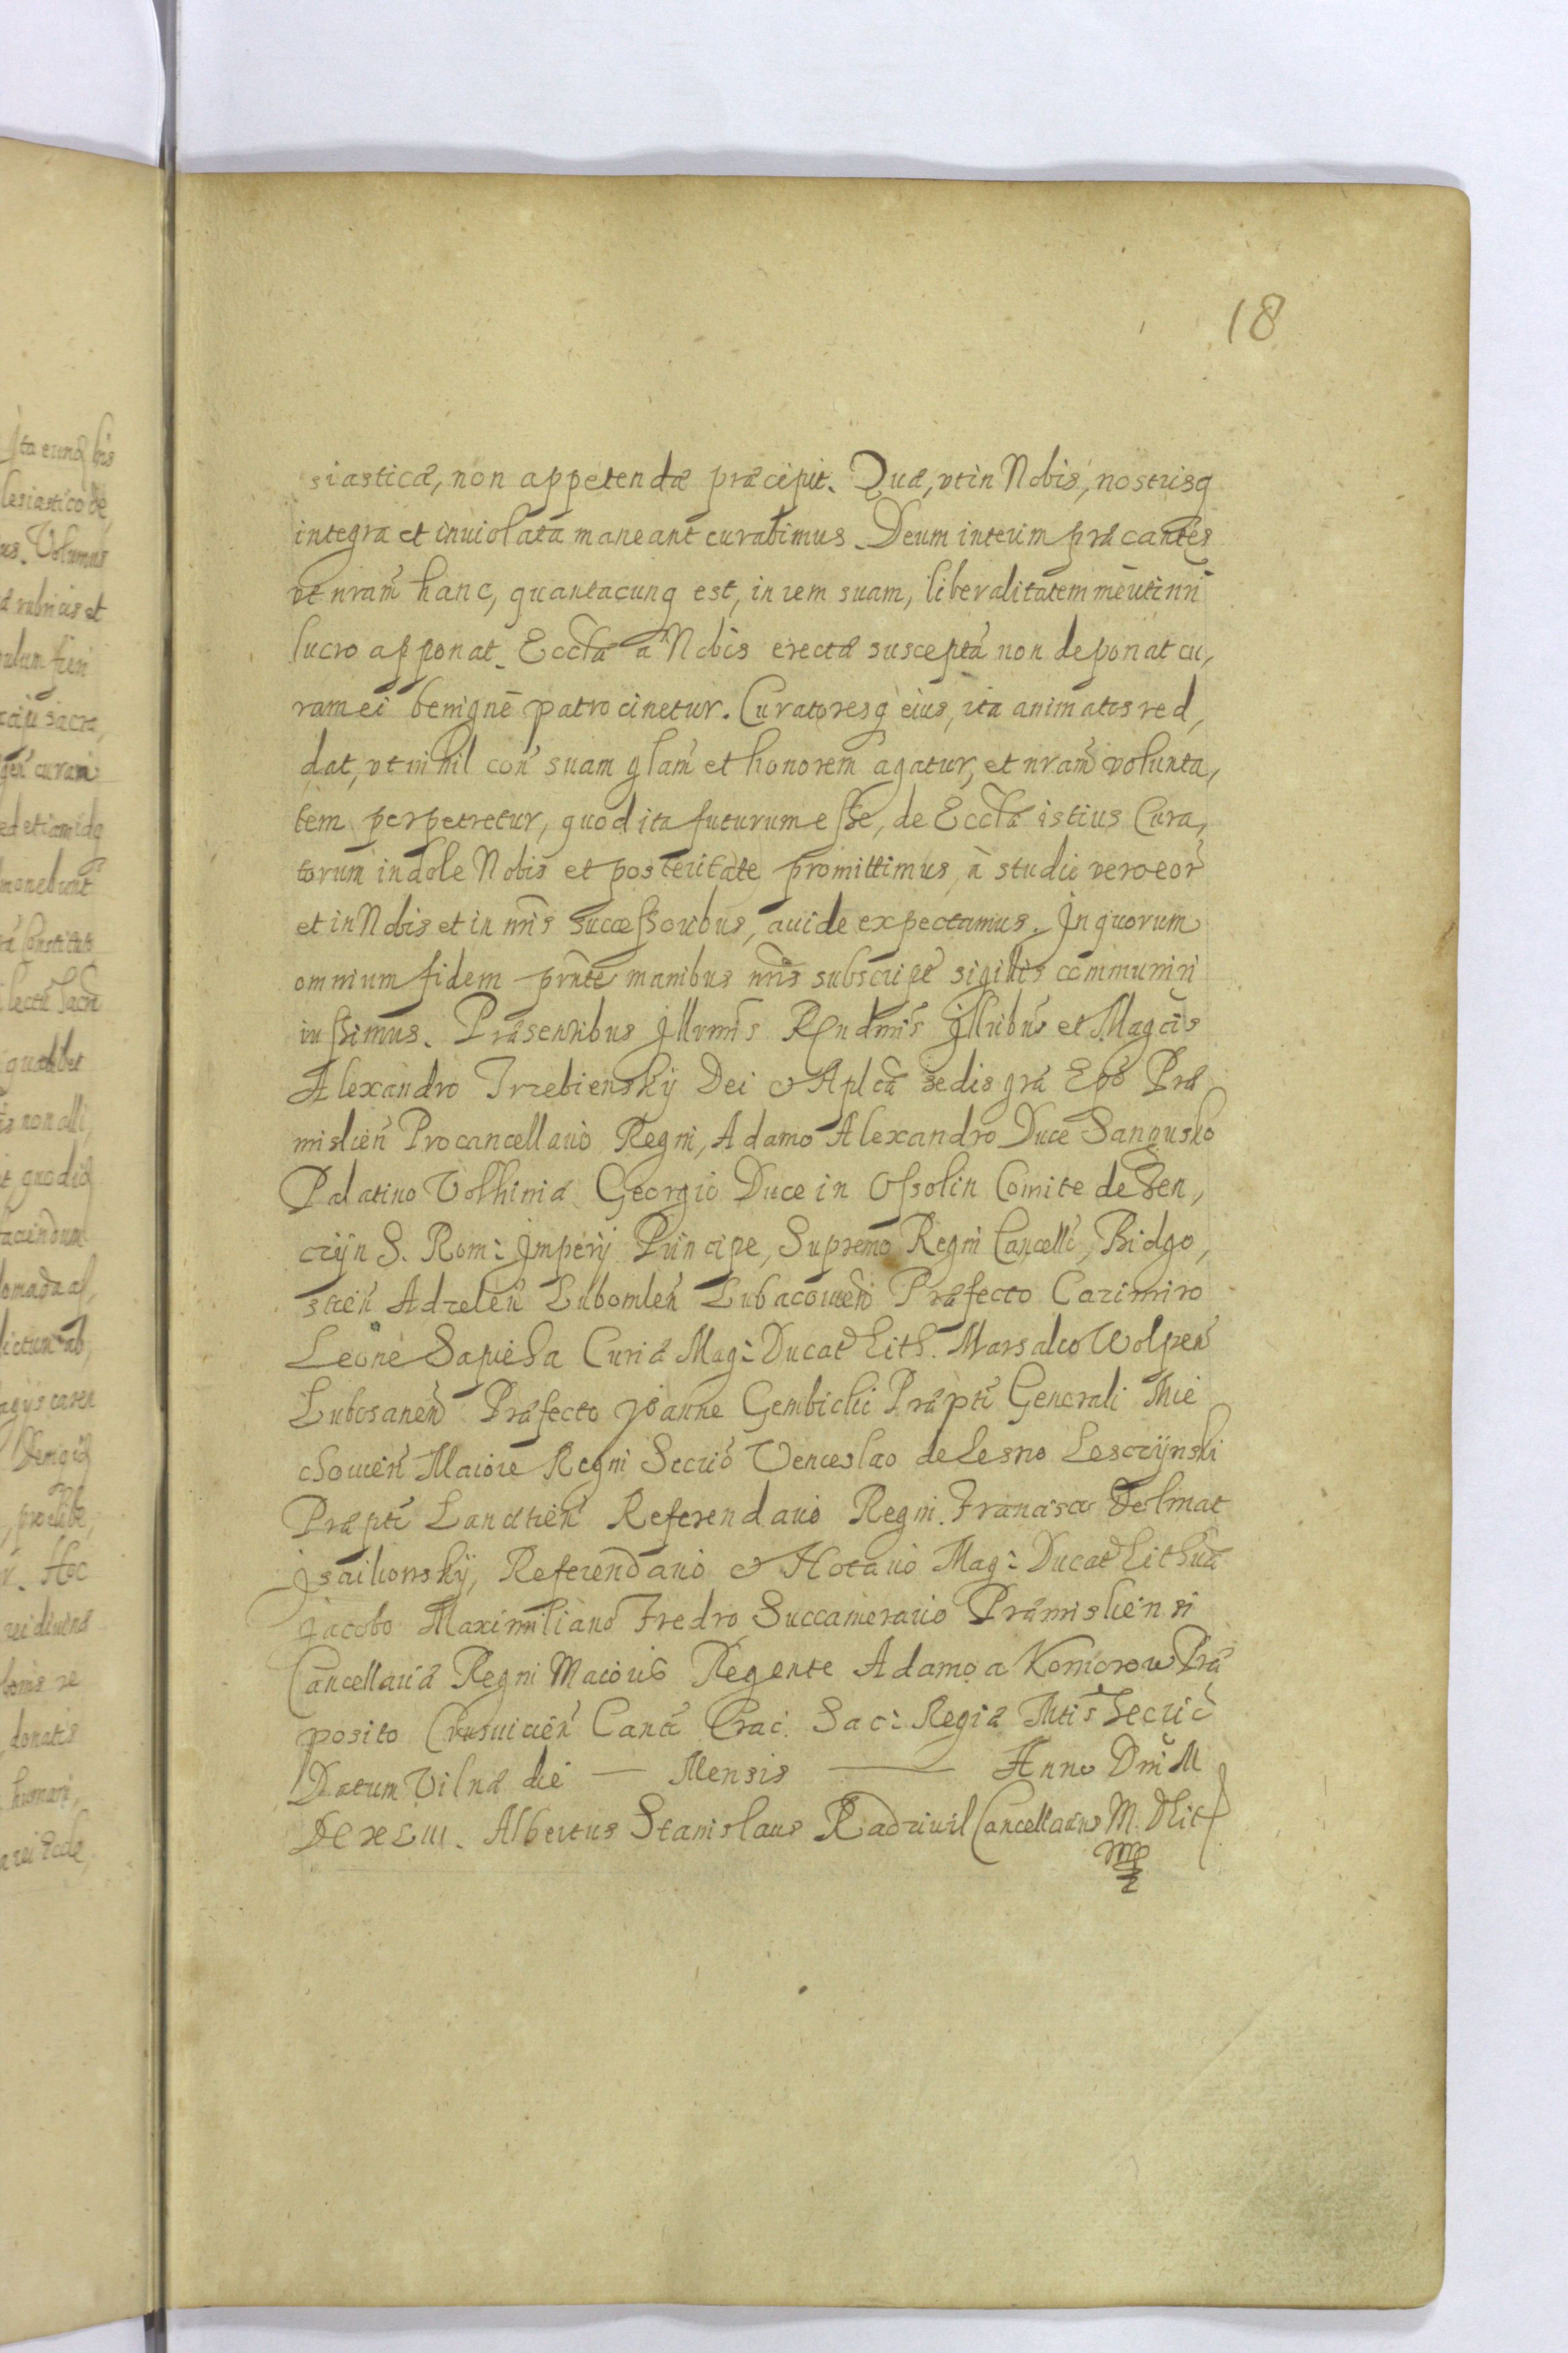 18
siasticæ, non appetendæ præcipit. Quæ, vt in Nobis, nostrisq
integra et inuiolata maneant curabimus. Deum interim præcantes
vt nram̃ hanc, quantacunq est, in rem suam, liberalitatem
lucro apponat. Eccła a Nobis erectæ susceptã non deponat cu,
ram ei benignè patrocinetur. Curatoresq eius, ita animatos red,
dat, vt nihil con̄ suam głam et honorem agatur, et nram̃ volunta,
tem perpetretur, quod ita futurum esse, de Eccła istius Cura,
torum indole Nobis et posteritate promittimus, à studio vero eor̃
et in Nobis et in nr̃is successoribus, auide expectamus. In quorum
omnium fidem pr̃nte manibus nr̃is subscripe sigillis communiri
iussimus. Præsentibus Illvmis Rndmis Illribus et Magcis
Alexandro Trzebienskÿ Dei & Aplcæ sedis grã Epo Præ
mislien̄ Procancellario Regni, Adamo Alexandro Duce Sangusko
Palatino Volhiniæ Georgio Duce in Ossolin Comite de Ten,
czÿn S. Rom: Imperÿ Principe, Supremo Regni Cancellio, Bidgo,
stien̄ Adzelen̄ Lubomlen̄ Lubaczouien̄ Præfecto Cazimiro
Leone Sapieha Curiæ Mag: Ducat Lith. Marsalco Wolpen̄
Lubosanen̄ Præfecto Joanne Gembicki Præpto Generali Mie
chouien̄ Maiore Regni Secrio Venceslao de Lesno Lesczÿnski
Præpto Lancitien̄ Referendario Regni. Francisco Dolmat
Isaikowskÿ, Referendario & Notario Mag: Ducat Lithuæ
Jacobo Maximiliano Fredro Succamerario Præmisliensi
Cancellariæ Regni Maioris Regente Adamo a Komorow Præ
posito Crusuicien̄ Canco Crac. Sac: Regiæ Mtis Secrio
Datum Vilnæ die — Mensis — Anno Dni M
DCXLIII. Albertus Stanislaus Radziuil Cancellarius M. D Lit
mp